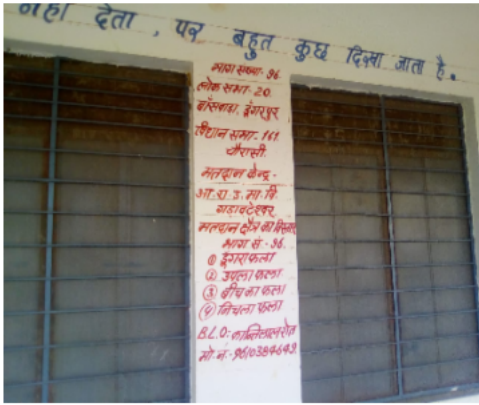 नहीं देता, पर बहुत कुछ दिखा जाता है.
भाग संख्या- 96
लोक सभा- 20
बाँसवाडा, डूंगरपुर
विधान सभा- 161
चौरासी
मतदान केन्द्र-
आ. रा. उ. मा. वि.
गडावटेश्वर
मतदान क्षेत्र का विस्तार
भाग सं- 96
① डूंगरा फला
② उपला फला
③ बीच का फला
④ निचला फला
B.L.O:- कान्तिलाल रोत
मो. नं.- 9610384649